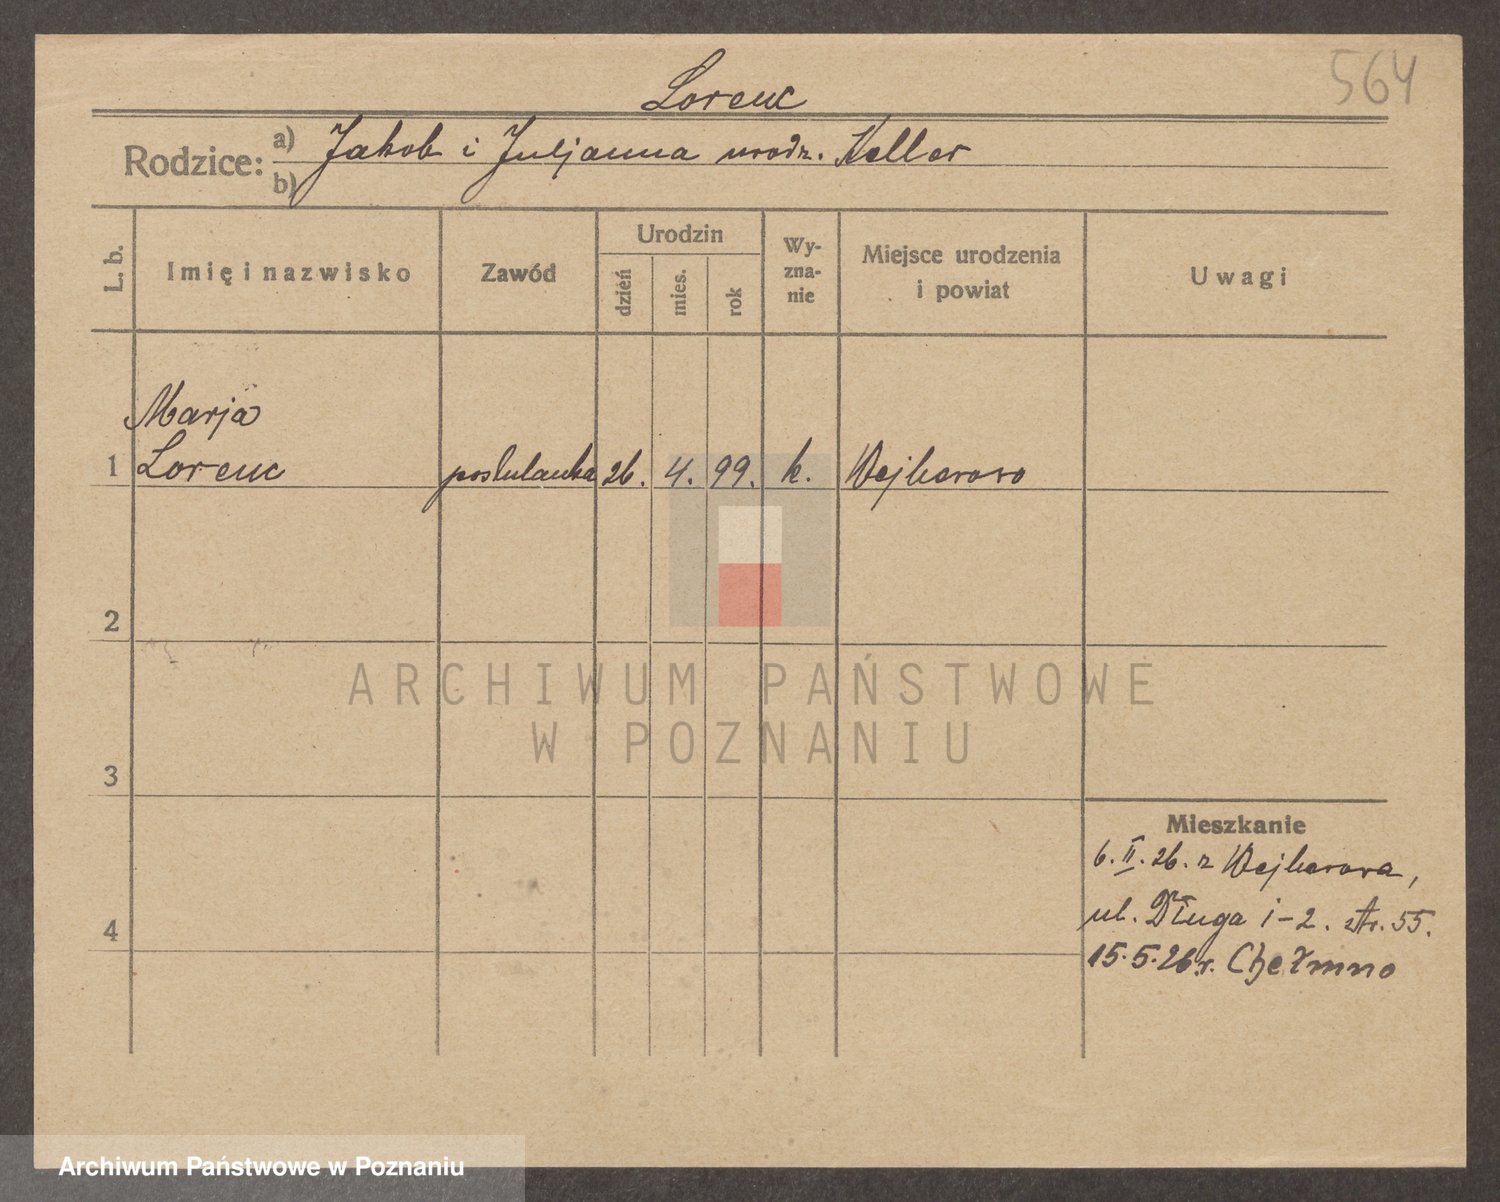 564
Lorenc
Rodzice: a) Jakob i Juljanna urodz. Keller
b)
L. b. Imię i nazwisko Zawód Urodzin dzień mies. rok Wy-zna-nie Miejsce urodzenia i powiat Uwagi
Marja
1 Lorenc postulantka 26. 4. 99. k. Wejherowo
2
ARCHIWUM PAŃSTWOWE
W POZNANIU
3
Mieszkanie
6. II. 26. z Wejherowa,
ul. Długa 1-2. str. 55.
4
15.5.26 r. Chełmno
Archiwum Państwowe w Poznaniu